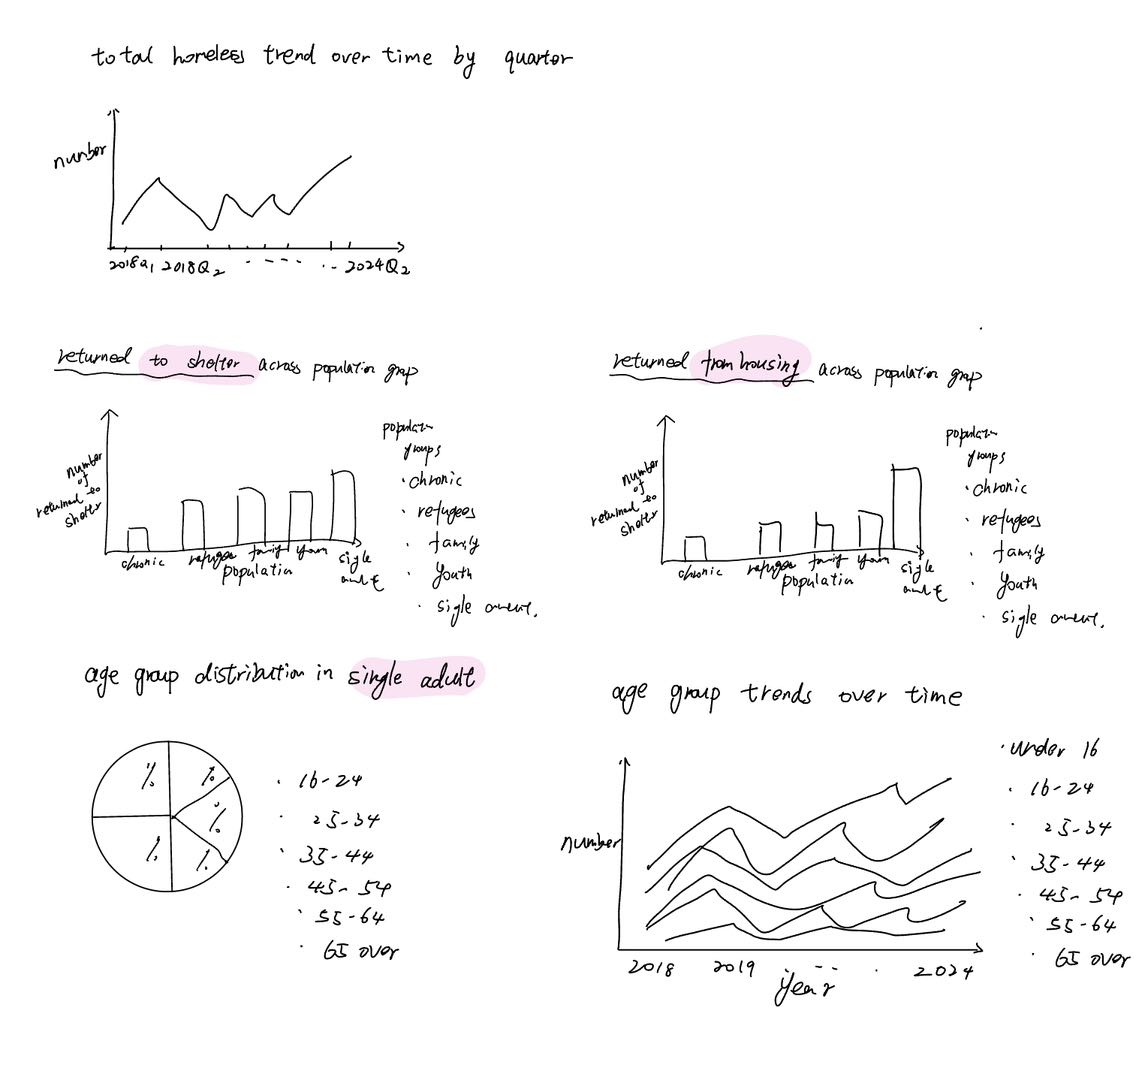 total homeless trend over time by quarter
number
2018Q1 2018Q2 - - - - . . - 2024Q2
returned to shelter across population grap
number
of
returned to
shelter
chronic refugee family youn sigle
population
populatn
groups
· chronic
· refugees
· family
· youth
· sigle
returned from housing across population grap
number
of
returned to
shelter
chronic refugee family youn sigle
population
populatn
groups
· chronic
· refugees
· family
· youth
· sigle
age group distribution in single adult
% % % % %
· 16-24
· 25-34
· 35-44
· 45-54
· 55-64
· 65 over
age group trends over time
number
2018 2019 - - . 2024
year
· under 16
· 16-24
· 25-34
· 35-44
· 45-54
· 55-64
· 65 over